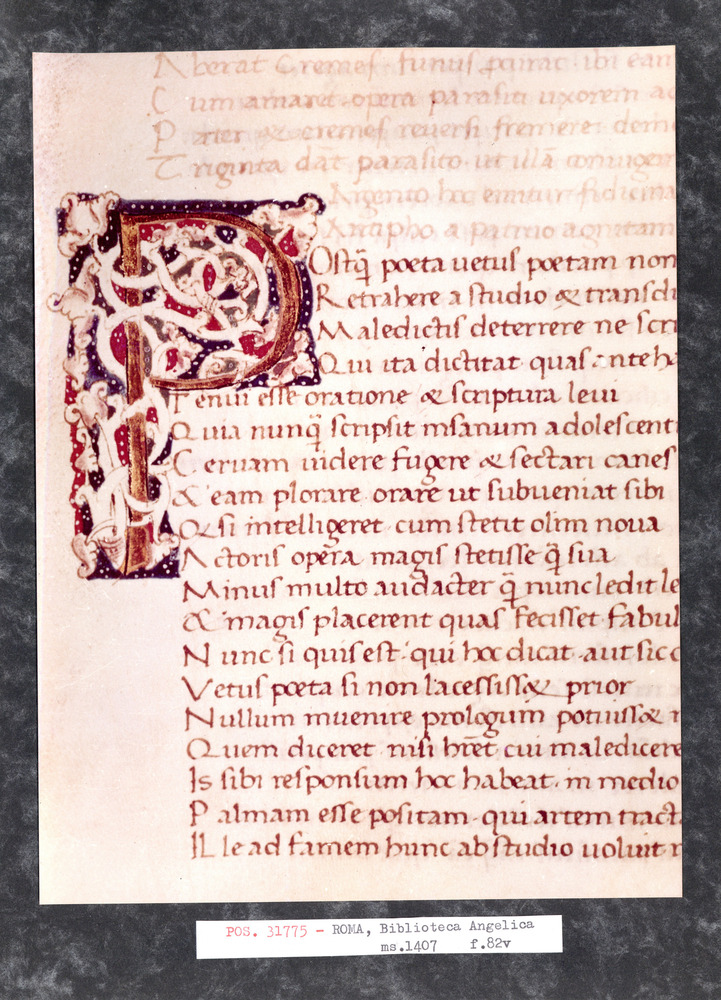 A berat Cremes. funus procurat. ibi eam
C um amaret. opera parasiti uxorem ac
P ater & cremes reuersi fremere. dein
T riginta dāt parasito. ut illā coniugem
Argento hoc emitur fidicina
Antipho a patruo agnitam
POstq̄ poeta uetus poetam non
R etrahere a studio & transdi
M aledictis deterrere ne scri
Q ui ita dictitat quas ante ha
T enui esse oratione & scriptura leui
Q uia nunq̄ scripsit insanum adolescent
C eruam uidere fugere & sectari canes
& eam plorare. orare ut subueniat sibi
Q & si intelligeret. cum stetit olim noua
A ctoris opera magis stetisse q̄ sua
Minus multo audacter q̄ nunc ledit le
& magis placerent quas fecisset fabul
N unc si quis est. qui hoc dicat. aut sic c
Vetus poeta si non lacessiss& prior
Nullum inuenire prologum potuiss& n
Quem diceret. nisi hr̄et cui maledicere
Is sibi responsum hoc habeat. in medio
P almam esse positam. qui artem tract
IL le ad famem hunc ab studio uoluit r
POS. 31775 - ROMA, Biblioteca Angelica
ms.1407 f.82v